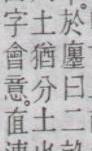 於廛曰二
土猶分土
字會意値